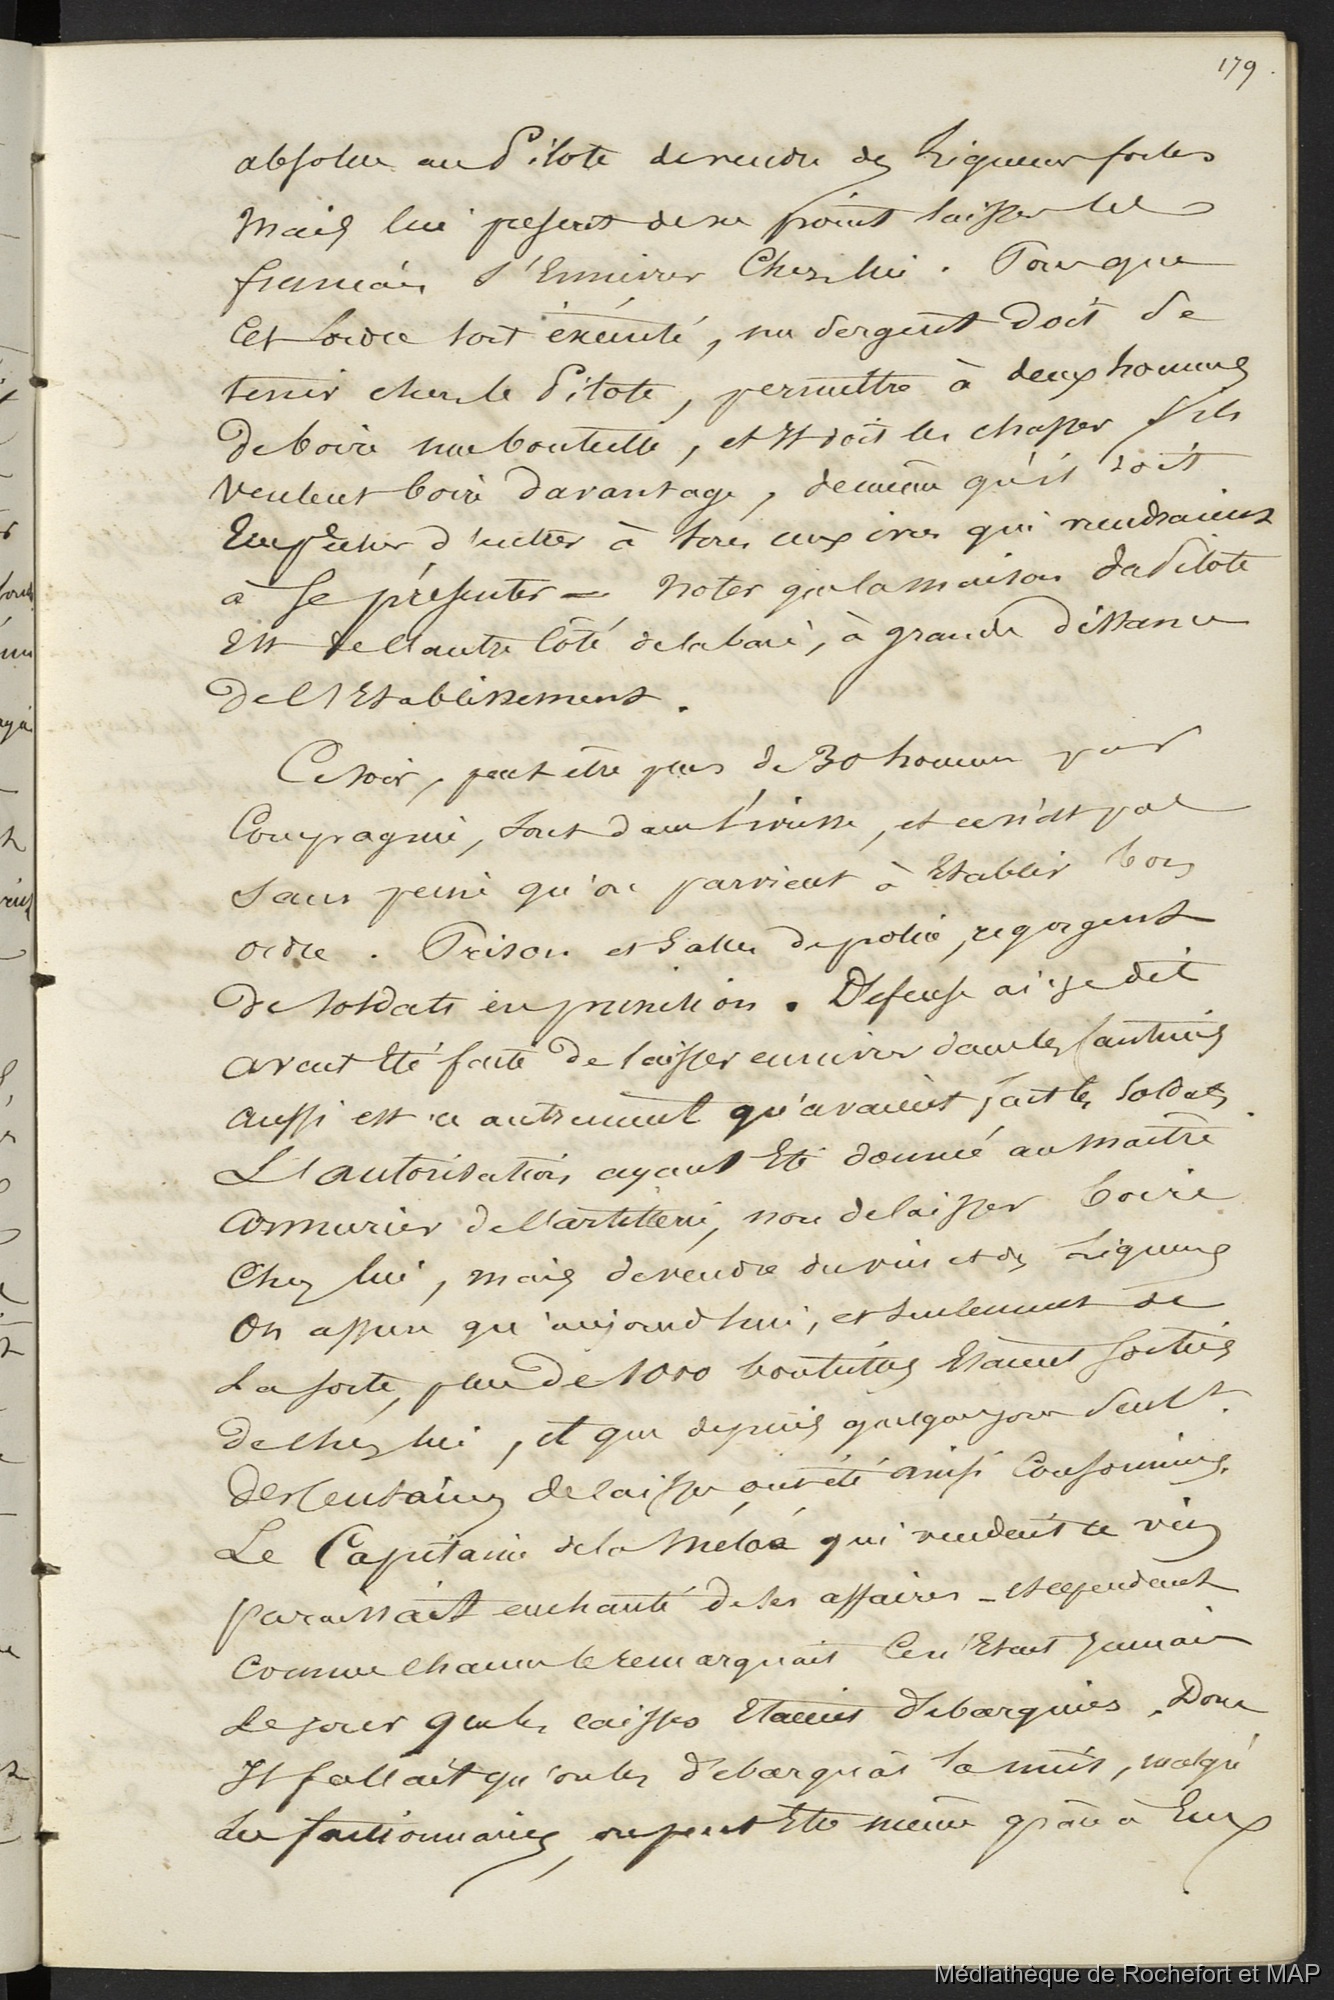 179
absolue au Pilote de vendre des Liqueurs fortes
Mais lui prescrit de ne point laisser les
français s'Ennivrer Chez lui. Pour que
Cet Ordre soit éxécuté, un Sergent doit se
tenir chez le Pilote, permettre à deux hommes
De boire une bouteille, et Il doit les chasser s'ils
veulent boire davantage, de même qu'il doit
Empêcher d'entrer à tous ceux ivres qui viendraient
à se présenter = Noter que la maison du Pilote
Est de l'autre Côté de la baie, à grande distance
De l'Etablissement.
Ce soir, peut être plus de 30 hommes par
Compagnie, sont dans l'ivresse, et ce n'est pas
sans peine qu'on parvient à Etablir bon
ordre. Prison et Salles de police, regorgent
De soldats en punition. Défense ai-je dit
avait Eté faite de laisser ennivrer dans les Cantines
aussi est ce autrement qu'avaient fait les Soldats.
L'autorisation ayant Eté donnée au maître
armurier de l'artillerie, non de laisser boire
Chez lui, mais de vendre du vin et des Liqueurs
On assure qu'aujourd'hui, et seulement de
la sorte, plus de 1000 bouteilles Etaient sorties
De chez lui, et que depuis quelques jours seult.
Des Centaines de caisses ont été ainsi Consommées.
Le Capitaine de la qui vendait ce vin
paraissait enchanté de ses affaires - et cependant
comme chacun le remarquait Ce n'Etait jamais
Le jour que les caisses Etaient débarquées. Donc
Il fallait qu'on les débarquât la nuit, malgré
Les factionnaires, ou peut Etre même grâce à Eux
Médiathèque de Rochefort et MAP